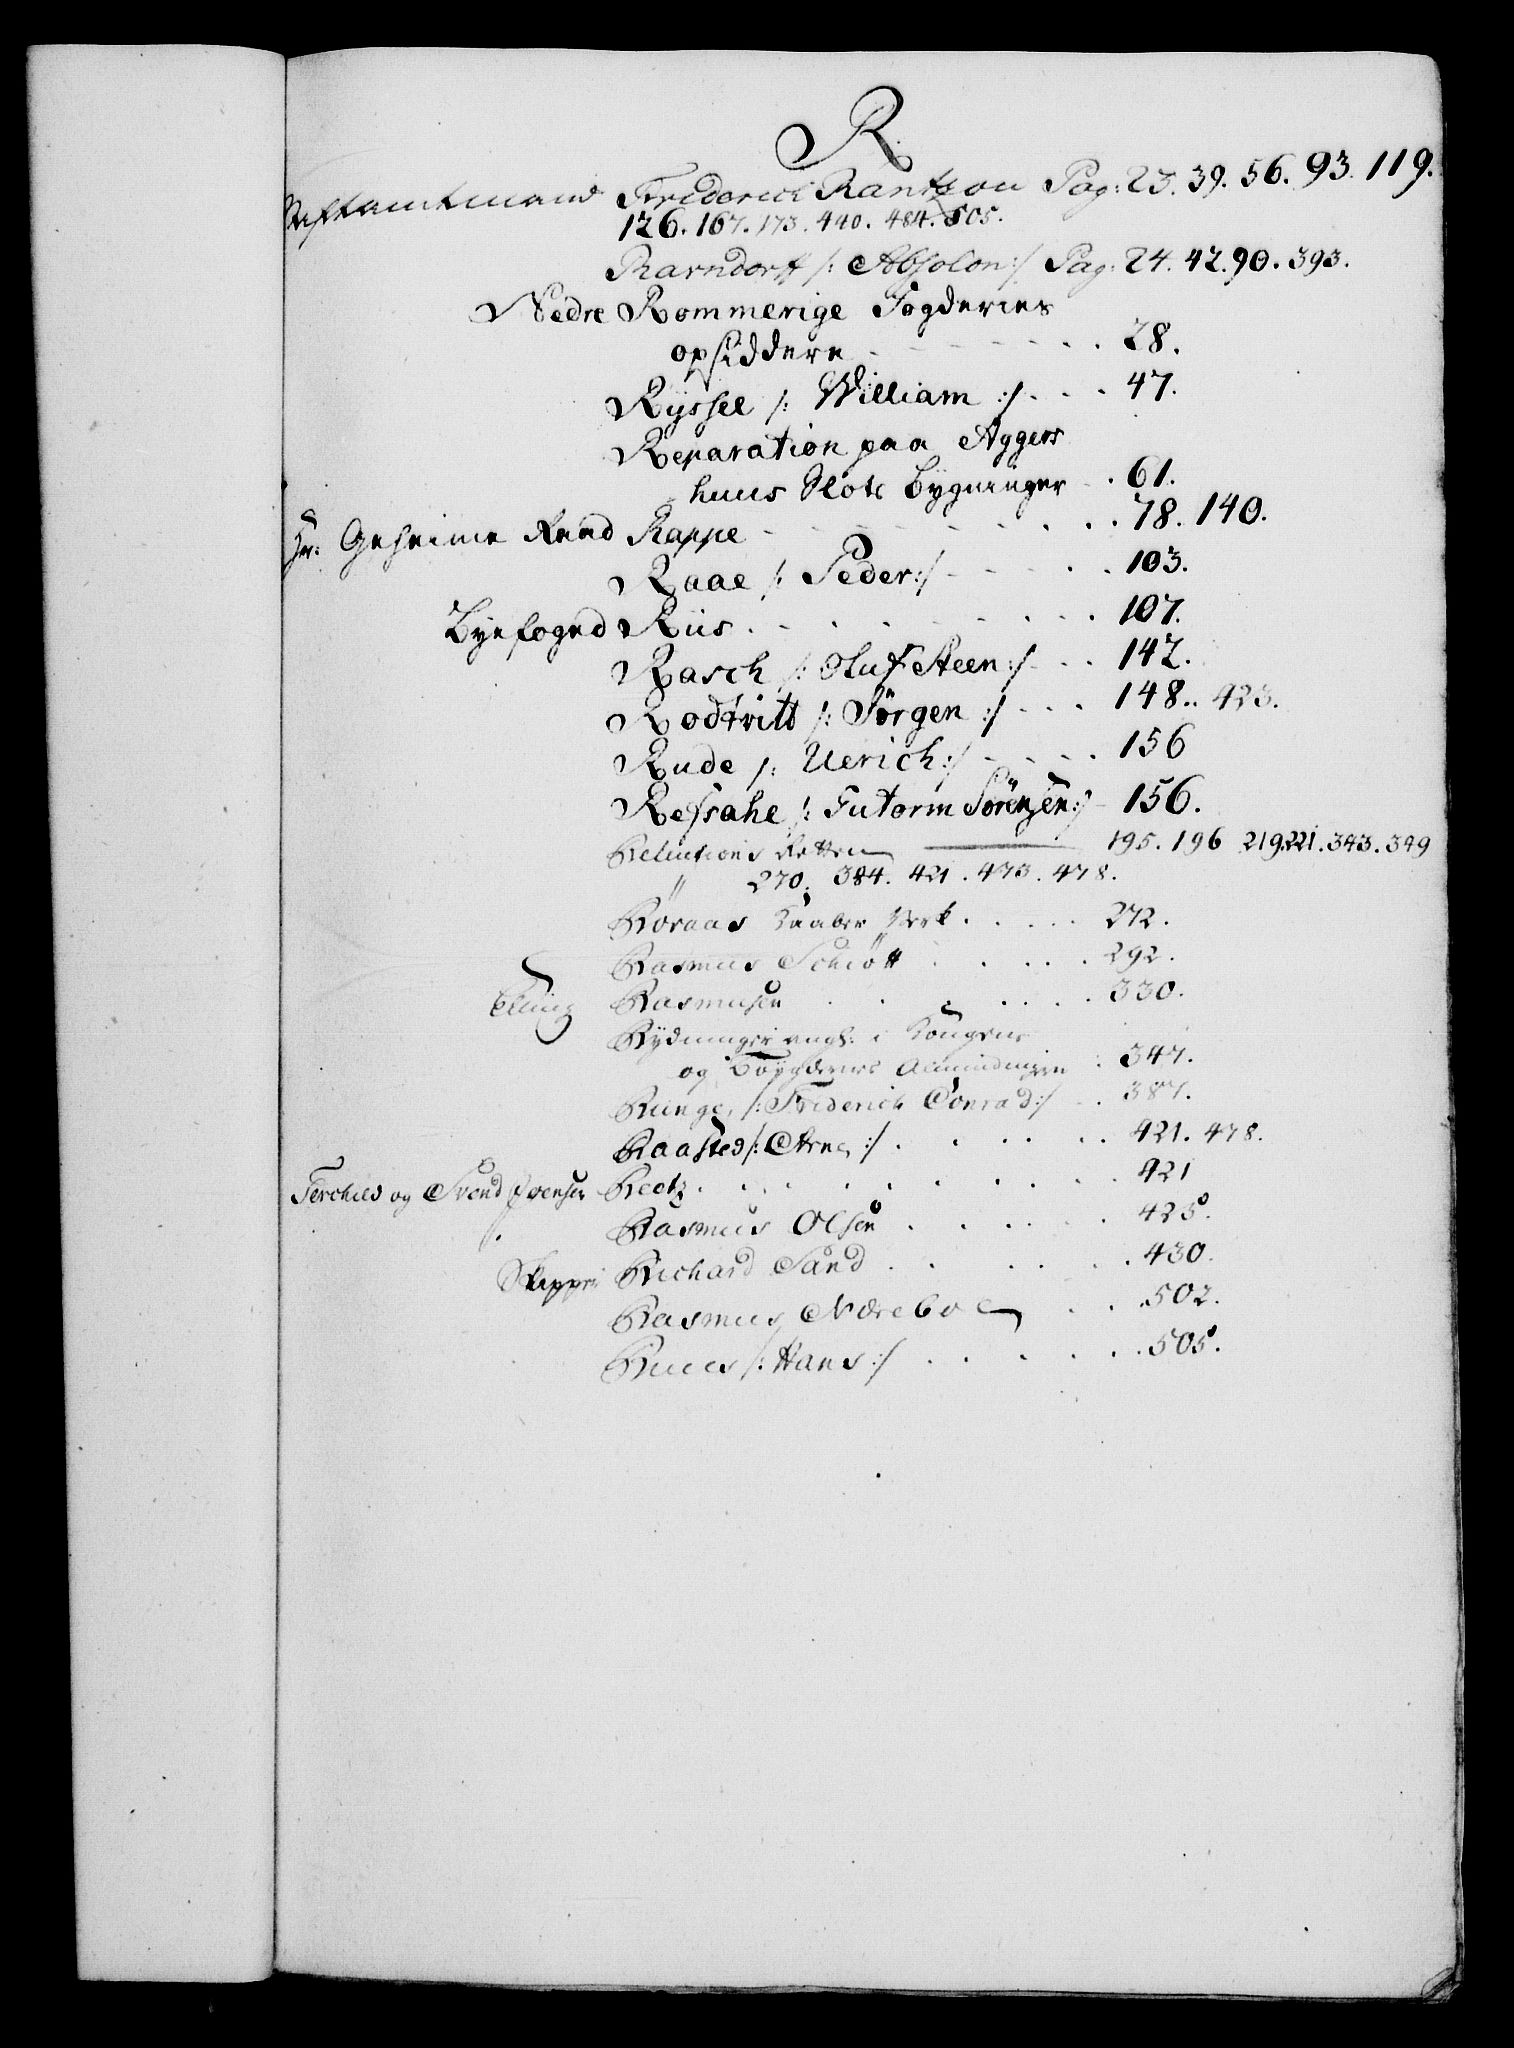 R.
Stiftamtmand Friderich Rantzou Pag: 23. 39. 56. 93. 119.
126. 167. 173. 440. 484. 505.
Rarndorff /: Absolon :/ Pag: 24. 42. 90. 393.
Nedre Rommerige Fogderies
opsiddere - - - - - - - . 28.
Ryssel /: William :/ . - - . 47.
Reparation paa Aggers
huus Slots Bygninger - . 61.
Hr. Geheime Raad Rappe - - - - - - - . . 78. 140.
Raae /: Peder :/ - - - . . 103.
Byefogd Riis . - . . - - . . . 107.
Rasch /: Oluf Steen :/ - . . 142.
Rodtvitt /: Jørgen :/ - - . 148.. 423.
Rude /: Ulrich :/ - - - . 156
Refsahe /: Futorm Sörensen :/ - 156.
Relutions Retten 195. 196 219. 221. 343. 349
" 270. 384. 421. 473. 478.
Röraas Kaaber Werk . . . . . 272.
Rasmus Schiött . . . . . 292.
Elling Rasmusen . . . . . . 330.
Rydninger angl: i Kongens
og Bøygdernes Almindingen . 347.
Runge, /: Friderich Conrad :/ - . 387.
Raasted /: Arne :/ . . . . . . 421. 478.
Terchild og Svend Evensen Reetz . . . . . . . . . 421
" Rasmus Olsen . . . . . 425.
Skipper Richard Sand . . . . . . 430.
Rasmus Næreboe . . . 502.
Ruus /: Hans :/ . . . . . . 505.